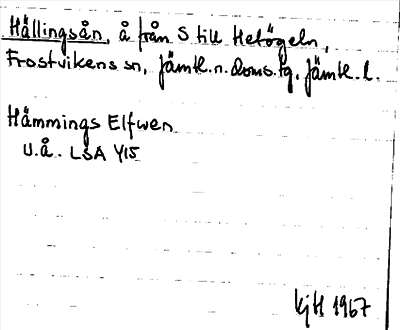 Hällingsån, å från S till Hetögeln,
Frostvikens sn, Jämtl. n. doms. tg, Jämtl. l.
Hämmings Elfwen
U.å. LSA Y15
KjH 1967